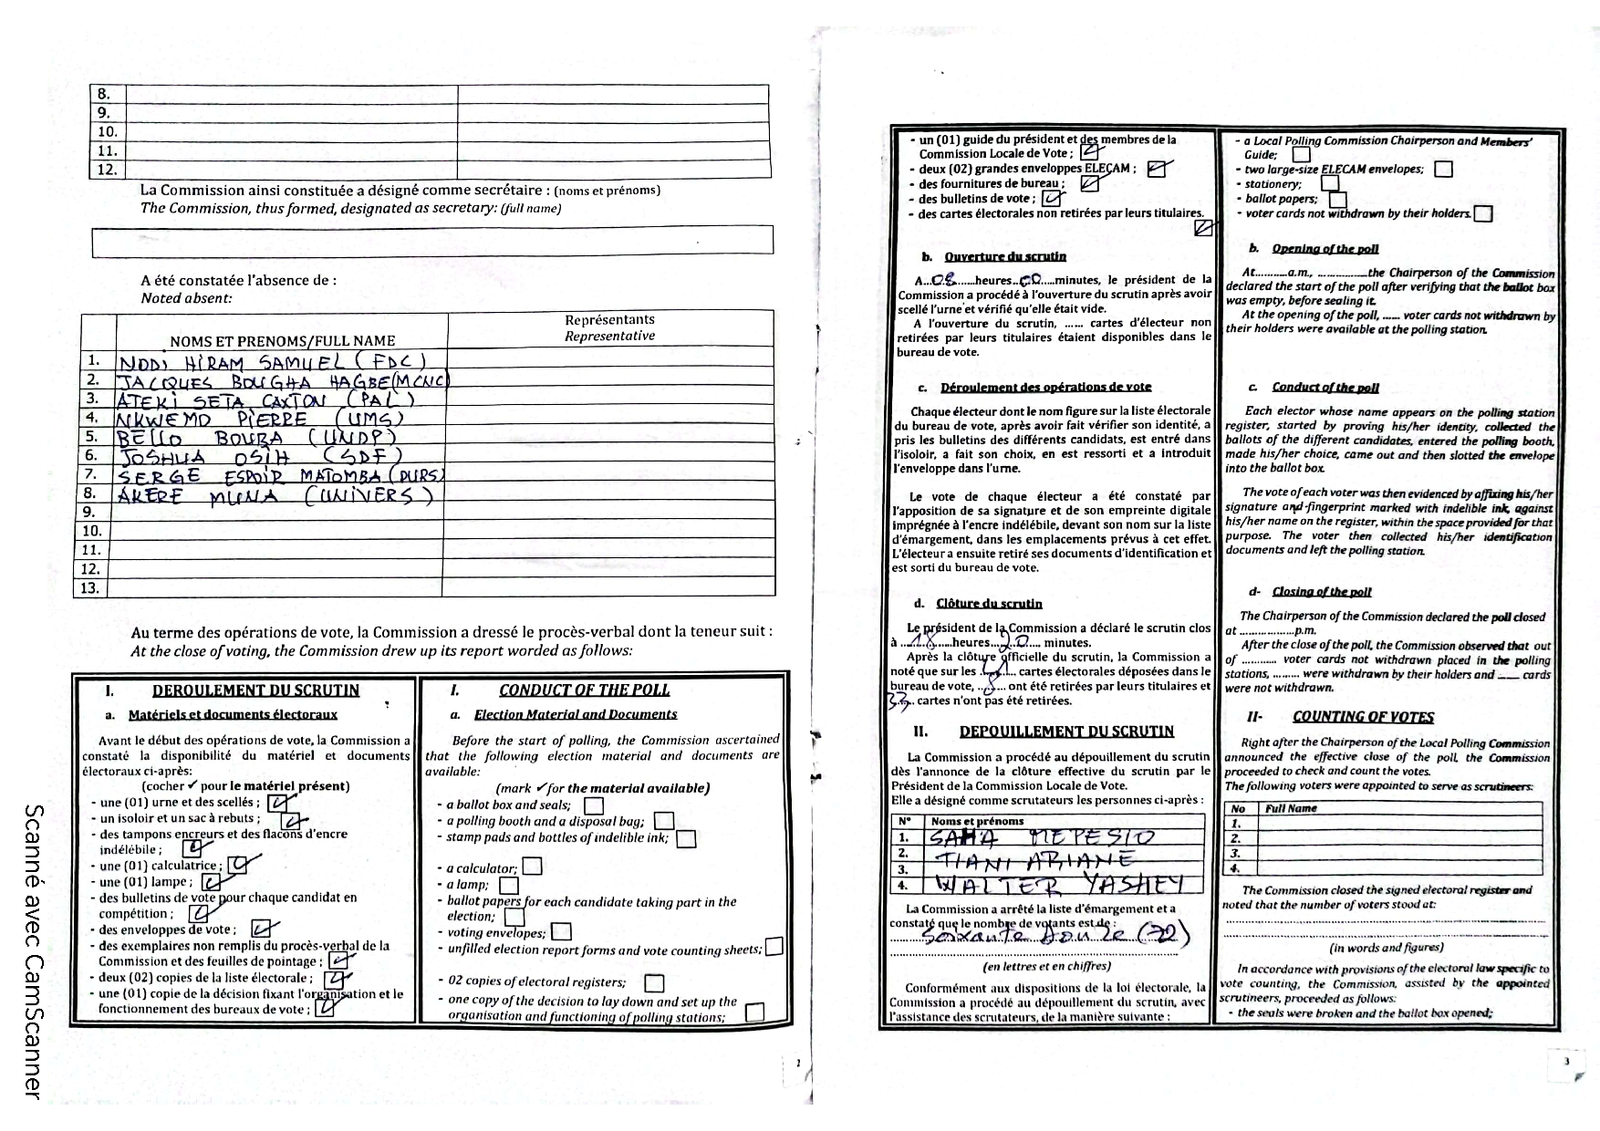 8.
9.
10.
11.
12.
La Commission ainsi constituée a désigné comme secrétaire : (noms et prénoms)
The Commission, thus formed, designated as secretary: (full name)
A été constatée l'absence de :
Noted absent:
NOMS ET PRENOMS/FULL NAME
Représentants
Representative
1. NDDI HIRAM SAMUEL (FDC)
2. JACQUES BOUGHA HAGBE(MCNC)
3. ATEKI SETA CAXTON (PAL)
4. NKWEMO PIERRE (UMS)
5. BELLO BOUBA (UNDP)
6. JOSHUA OSIH (SDF)
7. SERGE ESPOIR MATOMBA (PURS)
8. AKERE MUNA (UNIVERS)
9.
10.
11.
12.
13.
Au terme des opérations de vote, la Commission a dressé le procès-verbal dont la teneur suit :
At the close of voting, the Commission drew up its report worded as follows:
I. DEROULEMENT DU SCRUTIN
a. Matériels et documents électoraux
Avant le début des opérations de vote, la Commission a
constaté la disponibilité du matériel et documents
électoraux ci-après:
(cocher ✓ pour le matériel présent)
- une (01) urne et des scellés ;
- un isoloir et un sac à rebuts ;
- des tampons encreurs et des flacons d'encre
indélébile ;
- une (01) calculatrice ;
- une (01) lampe ;
- des bulletins de vote pour chaque candidat en
compétition ;
- des enveloppes de vote ;
- des exemplaires non remplis du procès-verbal de la
Commission et des feuilles de pointage ;
- deux (02) copies de la liste électorale ;
- une (01) copie de la décision fixant l'organisation et le
fonctionnement des bureaux de vote ;
I. CONDUCT OF THE POLL
a. Election Material and Documents
Before the start of polling, the Commission ascertained
that the following election material and documents are
available:
(mark ✓ for the material available)
- a ballot box and seals;
- a polling booth and a disposal bag;
- stamp pads and bottles of indelible ink;
- a calculator;
- a lamp;
- ballot papers for each candidate taking part in the
election;
- voting envelopes;
- unfilled election report forms and vote counting sheets;
- 02 copies of electoral registers;
- one copy of the decision to lay down and set up the
organisation and functioning of polling stations;
Scanné avec CamScanner
- un (01) guide du président et des membres de la
Commission Locale de Vote ;
- deux (02) grandes enveloppes ELECAM ;
- des fournitures de bureau ;
- des bulletins de vote ;
- des cartes électorales non retirées par leurs titulaires.
b. Ouverture du scrutin
A...08......heures..00....minutes, le président de la
Commission a procédé à l'ouverture du scrutin après avoir
scellé l'urne et vérifié qu'elle était vide.
A l'ouverture du scrutin, ...... cartes d'électeur non
retirées par leurs titulaires étaient disponibles dans le
bureau de vote.
c. Déroulement des opérations de vote
Chaque électeur dont le nom figure sur la liste électorale
du bureau de vote, après avoir fait vérifier son identité, a
pris les bulletins des différents candidats, est entré dans
l'isoloir, a fait son choix, en est ressorti et a introduit
l'enveloppe dans l'urne.
Le vote de chaque électeur a été constaté par
l'apposition de sa signature et de son empreinte digitale
imprégnée à l'encre indélébile, devant son nom sur la liste
d'émargement, dans les emplacements prévus à cet effet.
L'électeur a ensuite retiré ses documents d'identification et
est sorti du bureau de vote.
d. Clôture du scrutin
Le président de la Commission a déclaré le scrutin clos
à ...18......heures...20.... minutes.
Après la clôture officielle du scrutin, la Commission a
noté que sur les ...41... cartes électorales déposées dans le
bureau de vote, ...8... ont été retirées par leurs titulaires et
33.. cartes n'ont pas été retirées.
II. DEPOUILLEMENT DU SCRUTIN
La Commission a procédé au dépouillement du scrutin
dès l'annonce de la clôture effective du scrutin par le
Président de la Commission Locale de Vote.
Elle a désigné comme scrutateurs les personnes ci-après :
N° Noms et prénoms
1. SAHA NEPESIO
2. TIANI ARIANE
3.
4. WALTER YASHEY
La Commission a arrêté la liste d'émargement et a
constaté que le nombre de votants est de :
Soixante douze (72)
(en lettres et en chiffres)
Conformément aux dispositions de la loi électorale, la
Commission a procédé au dépouillement du scrutin, avec
l'assistance des scrutateurs, de la manière suivante :
- a Local Polling Commission Chairperson and Members'
Guide;
- two large-size ELECAM envelopes;
- stationery;
- ballot papers;
- voter cards not withdrawn by their holders.
b. Opening of the poll
At...........a.m., .................the Chairperson of the Commission
declared the start of the poll after verifying that the ballot box
was empty, before sealing it.
At the opening of the poll, ...... voter cards not withdrawn by
their holders were available at the polling station.
c. Conduct of the poll
Each elector whose name appears on the polling station
register, started by proving his/her identity, collected the
ballots of the different candidates, entered the polling booth,
made his/her choice, came out and then slotted the envelope
into the ballot box.
The vote of each voter was then evidenced by affixing his/her
signature and fingerprint marked with indelible ink, against
his/her name on the register, within the space provided for that
purpose. The voter then collected his/her identification
documents and left the polling station.
d- Closing of the poll
The Chairperson of the Commission declared the poll closed
at ..................p.m.
After the close of the poll, the Commission observed that out
of ............ voter cards not withdrawn placed in the polling
stations, ......... were withdrawn by their holders and ____ cards
were not withdrawn.
II- COUNTING OF VOTES
Right after the Chairperson of the Local Polling Commission
announced the effective close of the poll, the Commission
proceeded to check and count the votes.
The following voters were appointed to serve as scrutineers:
No Full Name
1.
2.
3.
4.
The Commission closed the signed electoral register and
noted that the number of voters stood at:
(in words and figures)
In accordance with provisions of the electoral law specific to
vote counting, the Commission, assisted by the appointed
scrutineers, proceeded as follows:
- the seals were broken and the ballot box opened;
3